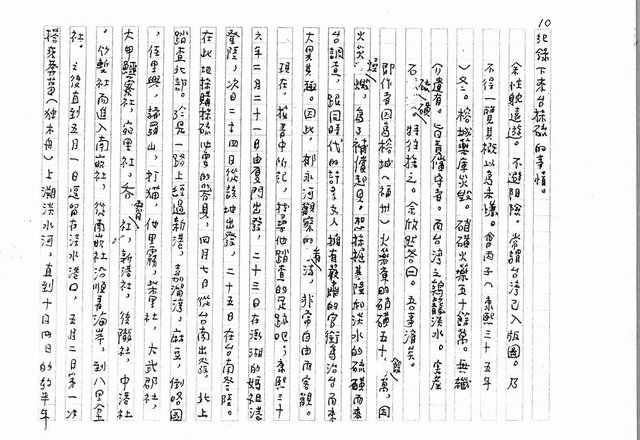 10
紀錄下來台採硫的事情。
余性耽遠遊。不避阻險。常謂台灣已入版圖。乃
不得一覽其概以為未慊。會丙子(康熙三十五年
)冬。榕城藥庫火毀。硝磺火藥五十餘萬。無纖
介遺有。旨責償守者。而台灣之鷄籠淡水。實產
石硫磺。將往採之。余欣然笞曰。吾事濟矣。
即作者因為榕城(福州)火葯庫的硝磺五十餘萬,因
火災燒燬,為了補償起見。想採掘基隆和淡水的硫磺而來
台調查,跟同時代的許多文人擁有執照的官銜為治台而來
大異其趣。因此,郁永河觀察的台灣,非常自由而客觀。
現在,按書中所記,找尋他踏查的足跡吧,康熙三十
六年二月二十一日由廈門出發,二十三日在澎湖的媽祖港
登陸,次日二十四日從該地出發,二十五日在台南登陸。
在此地採購採硫必要的器具,四月七日從台南出發,北上
踏查北部,於是一路上經過新港,嘉溜灣,麻豆,倒咯國
,佳里興,諸羅山,打猫,他里霧,柴里社,大武郡社,
大甲鱷霧社,宛里社,吞霄社,新港社,後壠社,中港社
,竹塹社而進入南嵌社,從南嵌社沿順著海岸,到八里坌
社。之後直到五月一日逗留在淡水港口,五月二日第一次
搭乘莽葛(独木舟)上溯淡水河,直到十月四日的約半年